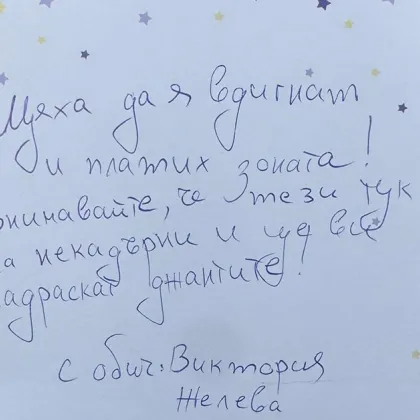 Щяха да я вдигнат
и платих зоната!
онинавайте, че тези тук
а некадърни и ще все
адраскат джантите!
С обич: Виктория
Желева